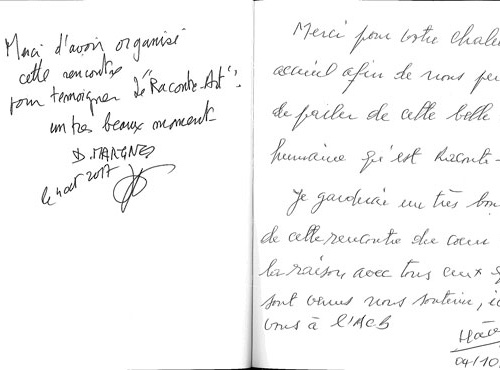 Merci d'avoir organisé
cette rencontre
pour témoigner de "Raconte-Art":
un tres beaux moment
D. MARGNES
le 4 oct 2017
Merci pour votre chaleu
accueil afin de nous per
de parler de cette belle
humaine qu'est Raconte-
Je garderai un très bon
de cette rencontre du coeur
la raison avec tous ceux q
sont venus nous soutenir, ic
vous à l'ACB
04/10